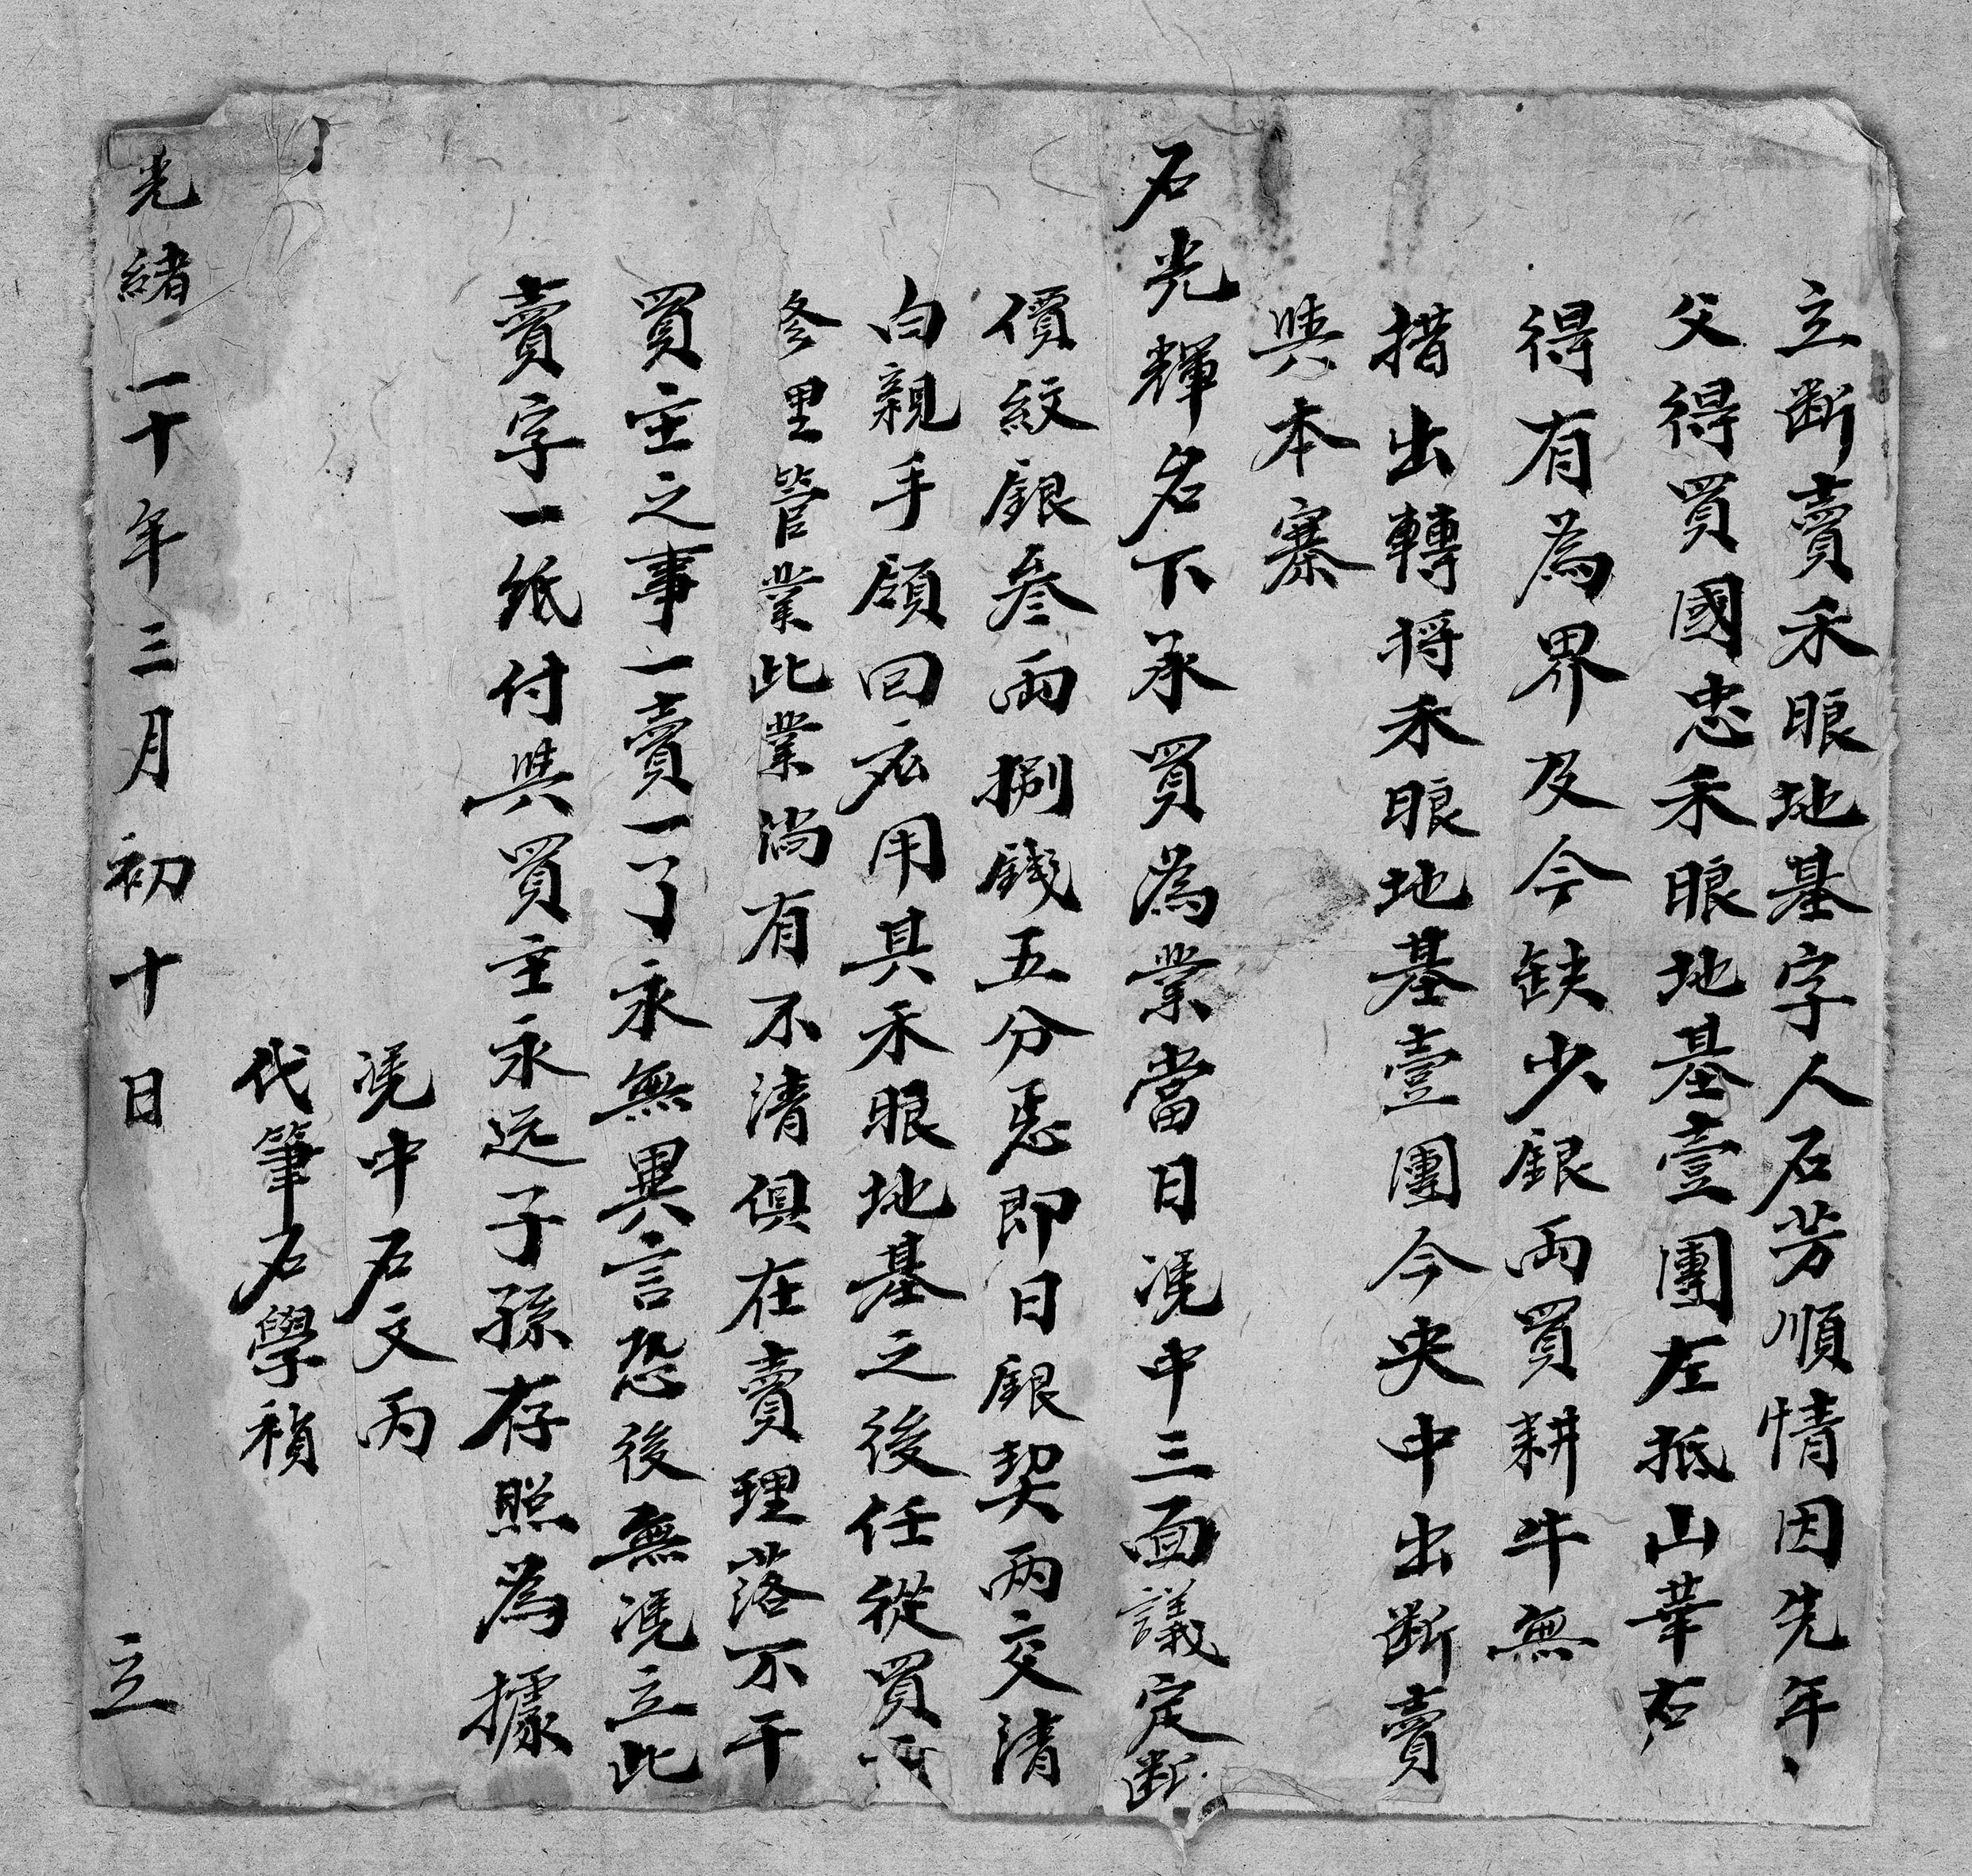 立断賣禾眼地基字人石芳順情因先年
父得買國忠禾眼地基壹團左抵山華右
得有為界及今缺少銀両買耕牛無
措出轉将禾眼地基壹團今央中出断賣
與本寨
石光輝名下承買為業當日凴中三面議定断
價紋銀叁両捌錢五分惪即日銀契两交清
白親手領回應用其禾眼地基之後任從買
修里管業此業倘有不清俱在賣理落不干
買主之事一賣一了永無異言恐後無凴立此
賣字一纸付與買主永远子孫存照為據
凴中石文丙
代筆石學禎
光緒二十年三月初十日 立